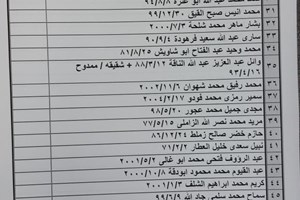 محمد عبد الله ابو عمرة ٩٤/٨/٨
٣١ محمد انيس صبح القيق ٩٩/١٢/٣٠
٣٢ بشار ماهر محمد شلحة ٢٠٠٠/٧/٣
٣٣ ساري عبد الله سعيد فرهودة ٩٠/٩/٤
٣٤ محمد وحيد عبد الفتاح أبو شاويش ٨١/٨/٢٥
٣٥ وائل عبد العزيز عبد الله الناقة ٨٨/٣/١٢ + شقيقه / ممدوح
٩٣/٤/١٦
٣٦ محمد رفيق محمد شهوان ٢٠٠٢/١١/٦
٣٧ سمير رمزي محمد فودو ٢٠٠٤/٢/١٧
٣٨ مجدي جميل محمد عجور ٩٨/٥/٢٠
٣٩ مريد محمد نصر الله الزاملي ٧٧/٥/١٥
٤٠ حازم خضر صالح زملط ٨٦/١٢/٢٤
٤١ نبيل سعدي خليل العطار ٧١/٢/٢
٤٢ عبد الرؤوف فتحي محمد ابو غالي ٢٠٠١/٥/٢
٤٣ عبد القيوم محمد محمود ابودقة ٢٠٠٠/١٠/٨
٤٤ كريم محمد ابراهيم الشلف ٢٠٠١/١/٣
٤٥ سماح محمد سلمي جاد الله ٩٩/٦/٩